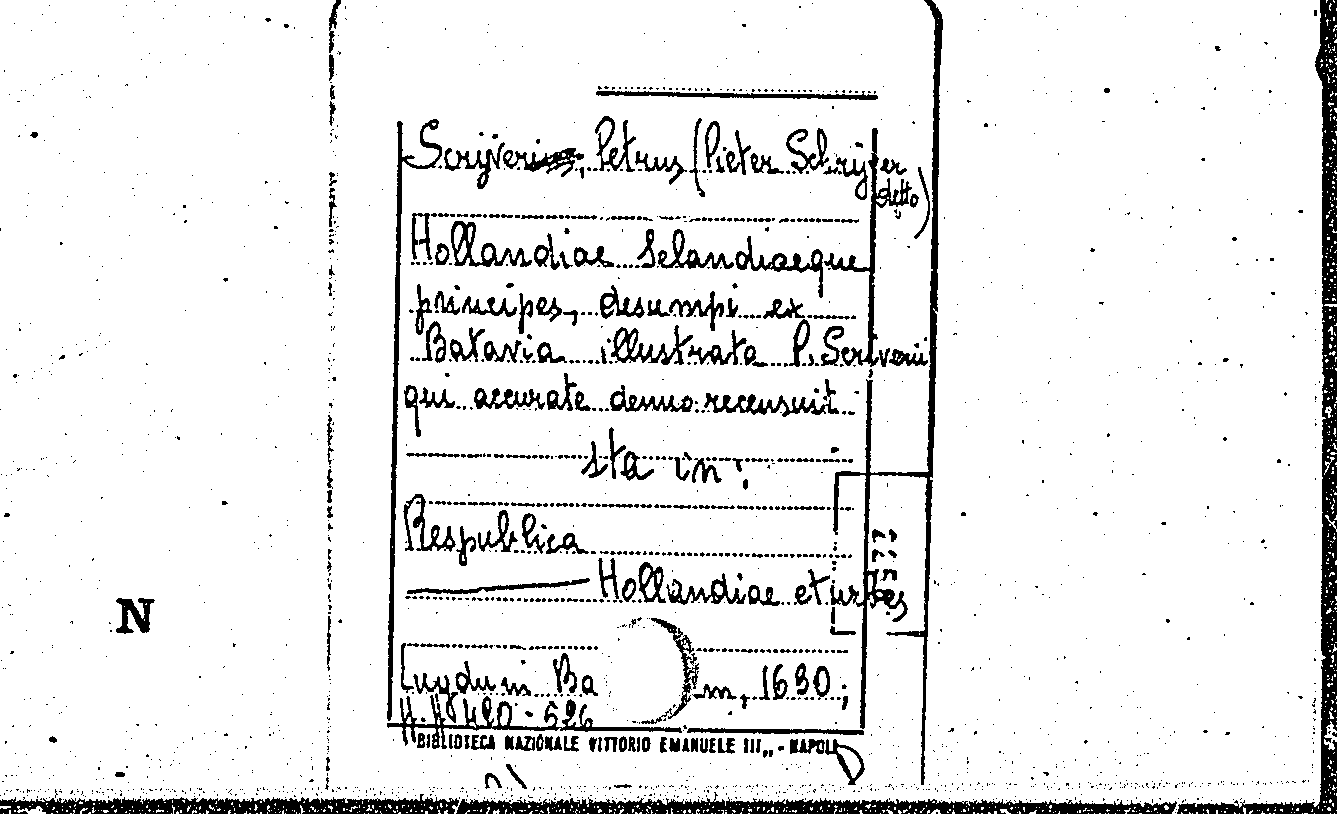 Scrijverius, Petrus (Pieter Schrijver
detto)
Hollandiae Selandiaeque
principes, desumpi ex
Batavia illustrata P. Scriverii
qui accurate denuo recensuit
sta in:
Respublica
Hollandiae et urbes
Lugduni Ba m, 1630;
"BIBLIOTECA NAZIONALE VITTORIO EMANUELE III„ - NAPOLI
N